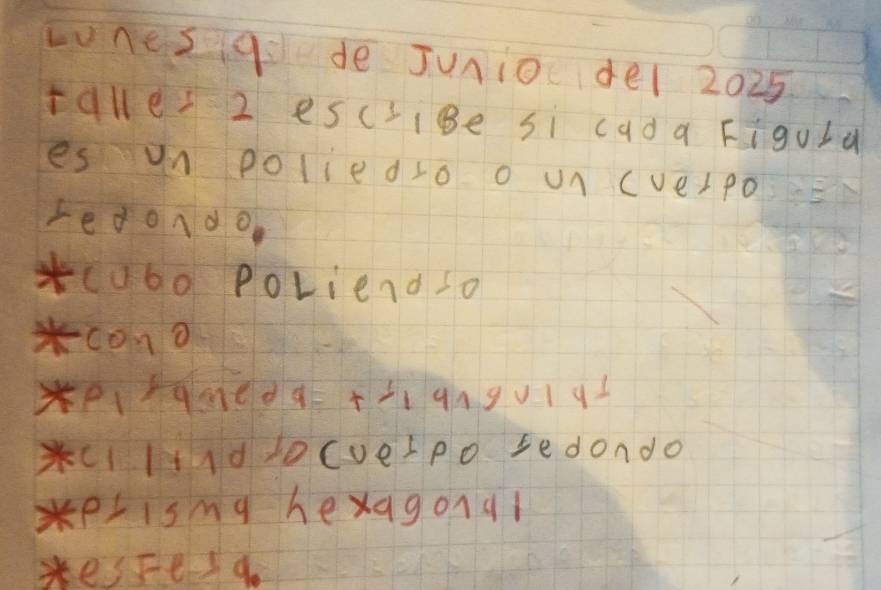 Lunes 9 de Junio del 2025
taller 2 escriBe si cada Figura
es un poliedro o un cuerpo
redondo.
*cubo PoLiendro
*cono
*pirameda triangular
*cilindro cuerpo redondo
*prisma hexagonal
*esFera.